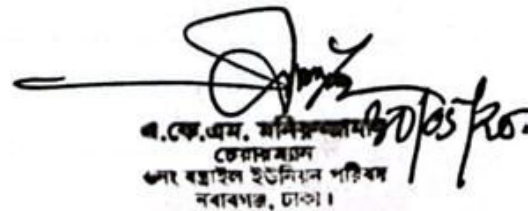 এ.কে.এম. মনিরুজ্জামান
চেয়ারম্যান
৬নং বক্সনগর ইউনিয়ন পরিষদ
নবাবগঞ্জ, ঢাকা।